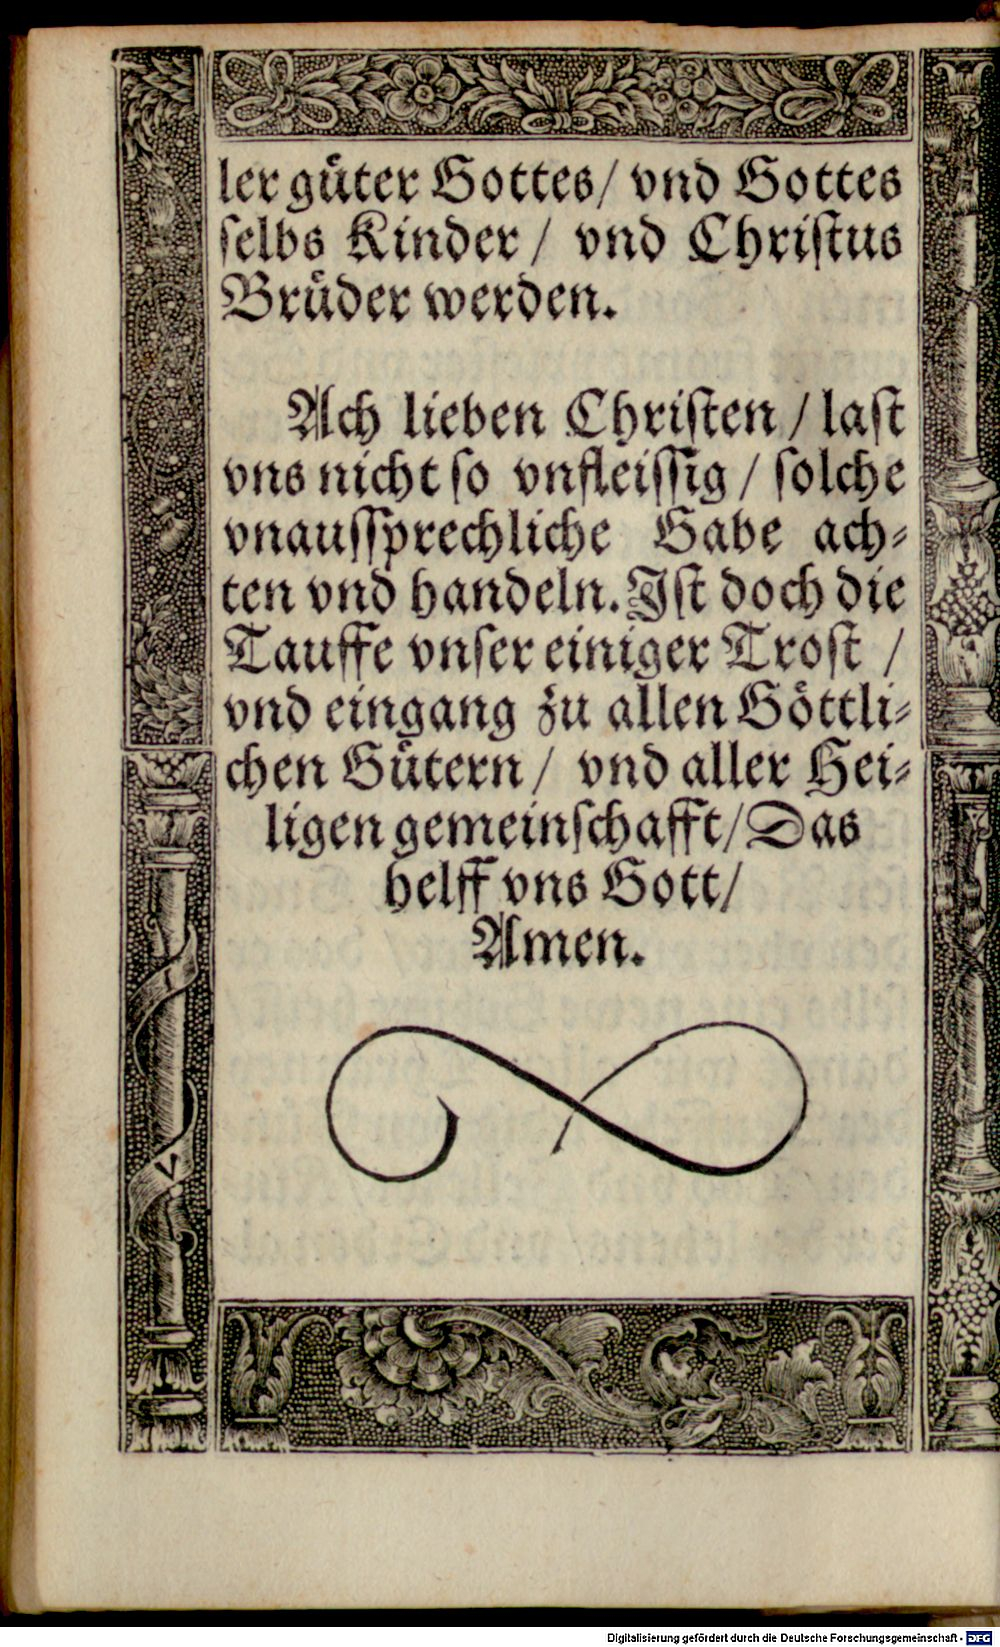 ler guͤter Gottes/ vnd Gottes
ſelbs Kinder / vnd Chriſtus
Bruͤder werden.
Ach lieben Chriſten / laſt
vns nicht ſo vnfleiſſig / ſolche
vnausſprechliche Gabe ach⸗
ten vnd handeln. Iſt doch die
Tauffe vnſer einiger Troſt /
vnd eingang zu allen Goͤttli⸗
chen Guͤtern / vnd aller Hei⸗
ligen gemeinſchafft/ Das
helff vns Gott/
Amen.
Digitalisierung gefördert durch die Deutsche Forschungsgemeinschaft - DFG